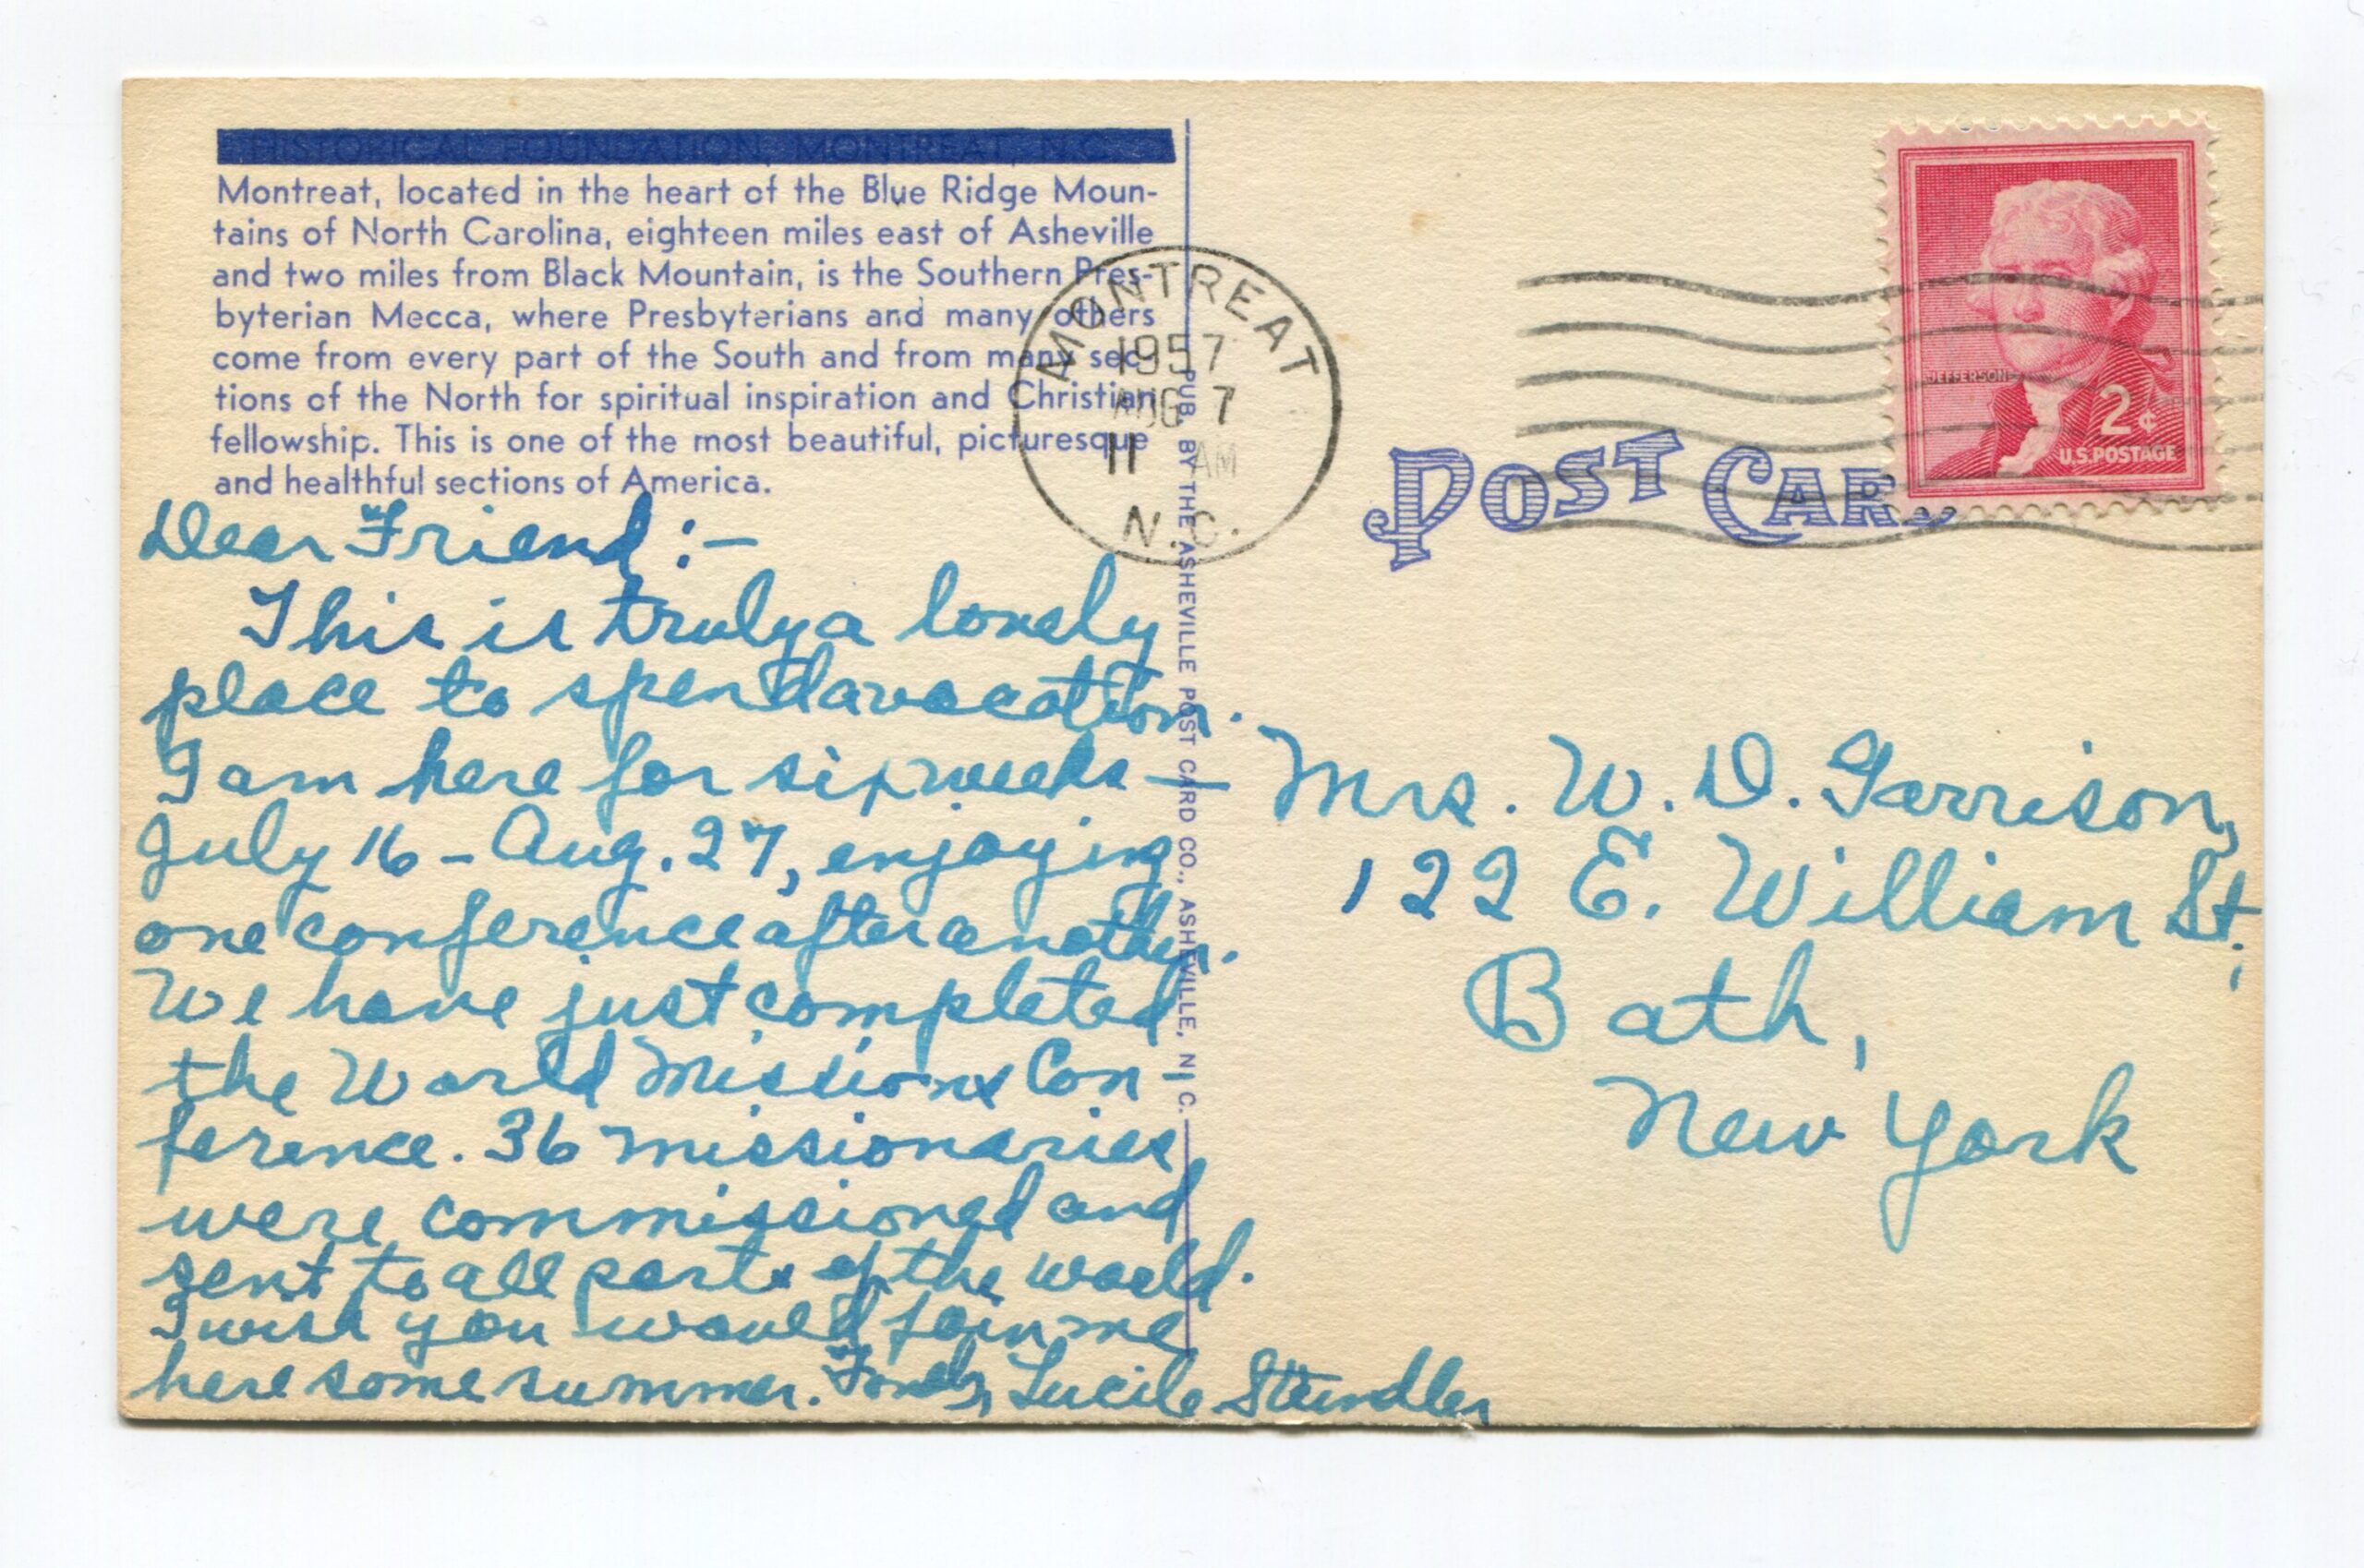 HISTORICAL FOUNDATION, MONTREAT, N.C.
Montreat, located in the heart of the Blue Ridge Moun-
tains of North Carolina, eighteen miles east of Asheville
and two miles from Black Mountain, is the Southern Pres-
byterian Mecca, where Presbyterians and many others
come from every part of the South and from many sec-
tions of the North for spiritual inspiration and Christian
fellowship. This is one of the most beautiful, picturesque
and healthful sections of America.
Dear Friend:-
This is truly a lovely
place to spend a vacation.
I am here for six weeks—
July 16 - Aug. 27, enjoying
one conference after another.
We have just completed
the World Missions Con
ference. 36 missionaries
were commissioned and
sent to all parts of the world.
I wish you would join me
here some summer. Fondly, Lucile
PUB. BY THE ASHEVILLE POST CARD CO., ASHEVILLE, N. C.
MONTREAT
1957
AUG 7
11 AM
N.C.
POST CARD
JEFFERSON
2¢
U.S. POSTAGE
Mrs. W. D. Garrison,
122 E. William St.,
Bath,
New York